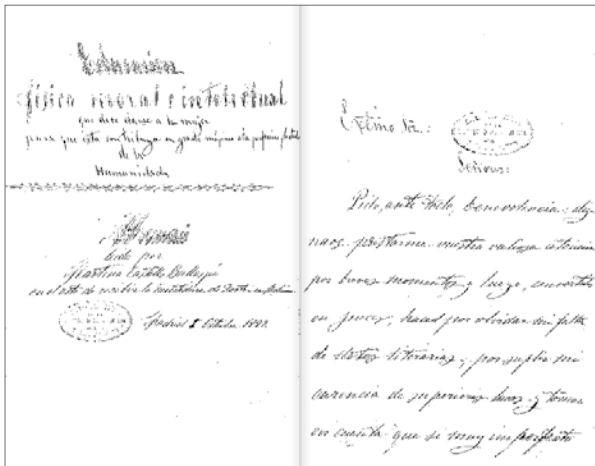 Educación
física moral e intelectual
que debe darse a la mujer
para que ésta contribuya en grado máximo a la perfección
de la
Humanidad
Memoria
leida por
Martina Castells Ballespí
en el acto de recibir la investidura de Doctor en Medicina
Madrid Octubre
Excmo Sr.:
Señores:
Pido, ante todo, benevolencia: dig-
naos prestarme vuestra valiosa atención
por breves momentos y luego, convertidos
en jueces, haced por olvidar mi falta
de dotes literarias, y por suplir mi
carencia de superiores luces y tomar
en cuenta que si muy imperfecto